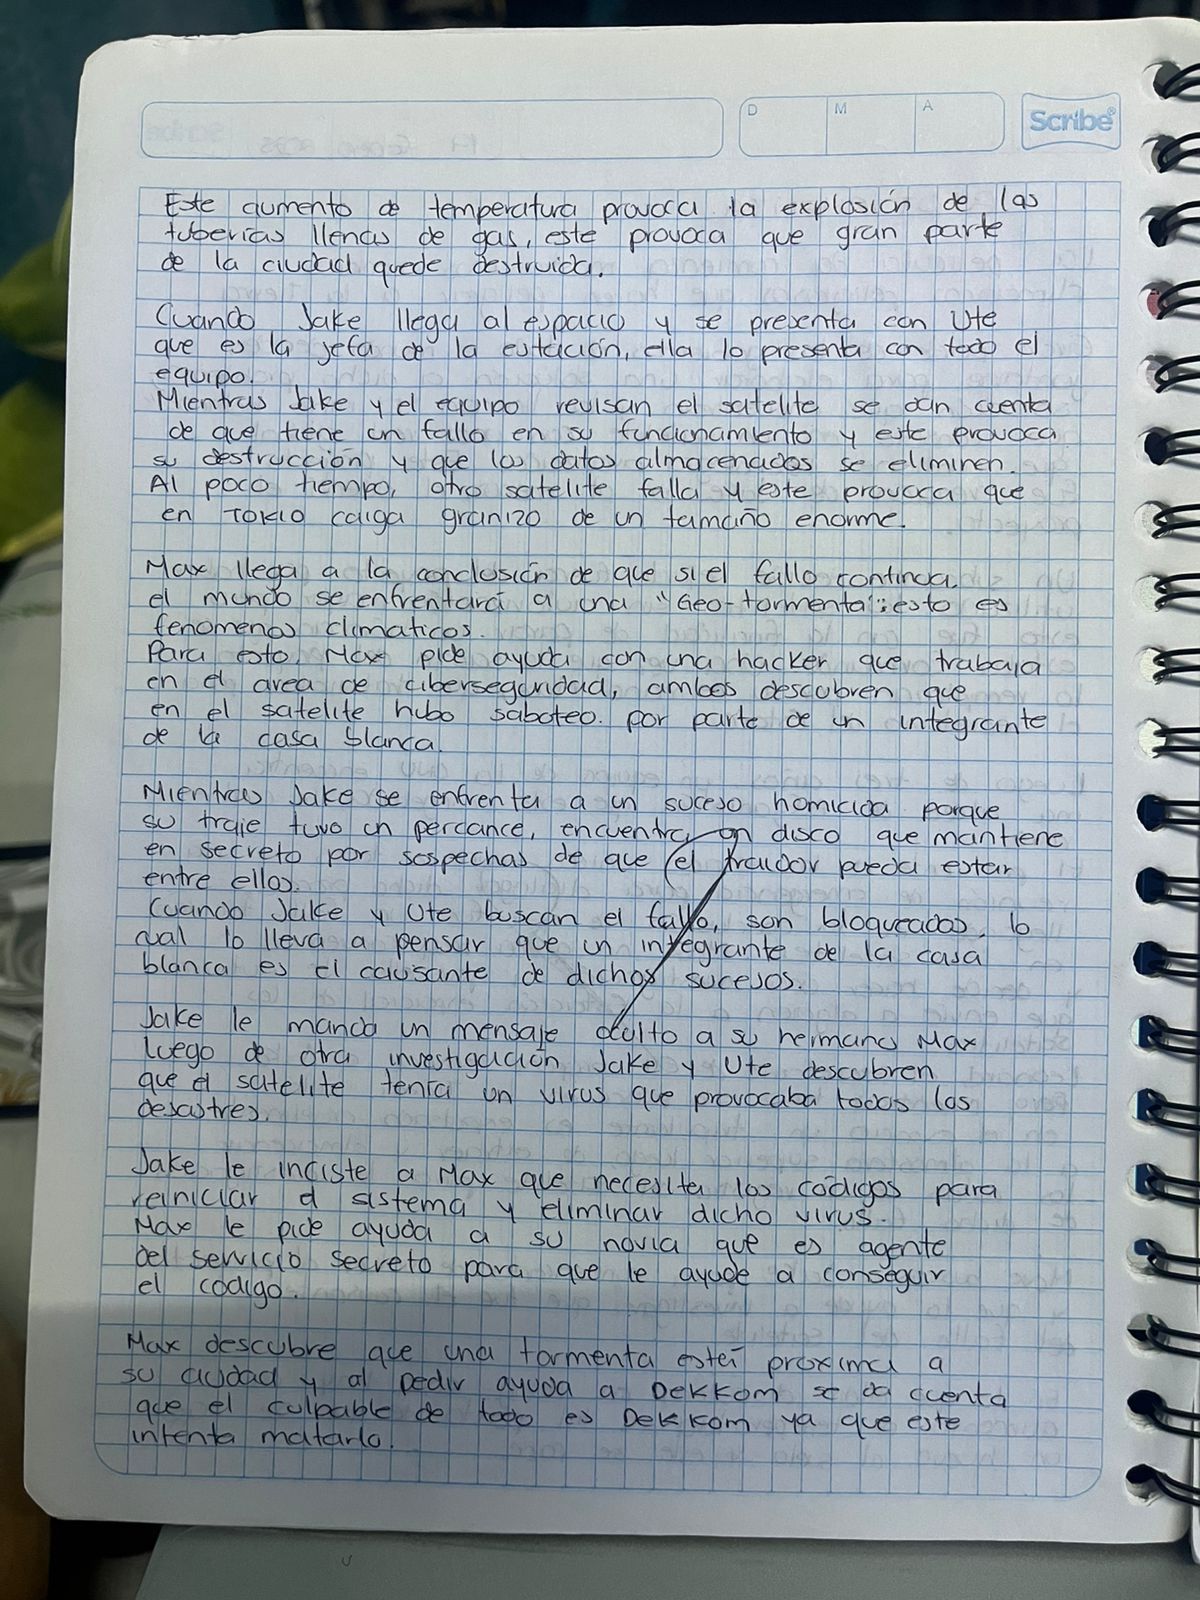 D M A Scribe
Este aumento de temperatura provoca la explosión de las
tuberias llenas de gas, este provoca que gran parte
de la ciudad quede destruida.
Cuando Jake llega al espacio y se presenta con Ute
que es la jefa de la estación, ella lo presenta con todo el
equipo.
Mientras Jake y el equipo revisan el satelite se dan cuenta
de que tiene un fallo en su funcionamiento y este provoca
su destrucción y que los datos almacenados se eliminen.
Al poco tiempo, otro satelite falla y este provoca que
en Tokio caiga granizo de un tamaño enorme.
Max llega a la conclusión de que si el fallo continua
el mundo se enfrentará a una "Geo-tormenta"; esto es
fenomenos climaticos.
Para esto, Max pide ayuda con una hacker que trabaja
en el area de ciberseguridad, ambos descubren que
en el satelite hubo saboteo. por parte de un integrante
de la casa blanca.
Mientras Jake se enfrenta a un suceso homicida porque
su traje tuvo un percance, encuentra un disco que mantiene
en secreto por sospechas de que el traidor pueda estar
entre ellos.
Cuando Jake y Ute buscan el fallo, son bloqueados, lo
cual lo lleva a pensar que un integrante de la casa
blanca es el causante de dichos sucesos.
Jake le manda un mensaje oculto a su hermano Max
luego de otra investigación Jake y Ute descubren
que el satelite tenía un virus que provocaba todos los
desastres.
Jake le inciste a Max que necesita los códigos para
reiniciar el sistema y eliminar dicho virus.
Max le pide ayuda a su novia que es agente
del servicio secreto para que le ayude a conseguir
el codigo.
Max descubre que una tormenta está proxima a
su ciudad y al pedir ayuda a Dekkom se da cuenta
que el culpable de todo es Dekkom ya que este
intenta matarlo.